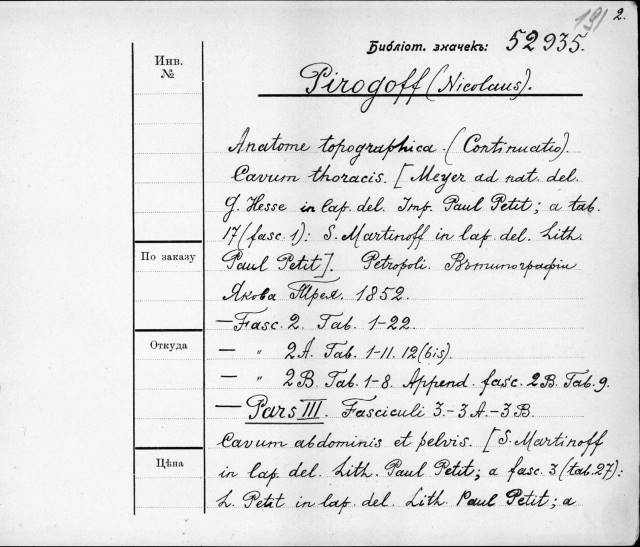 191 2.
Библіот. значекъ: 52935.
Инв.
№
Pirogoff (Nicolaus).
Anatome topographica. (Continuatio).
Cavum thoracis. [Meyer ad nat. del.
G. Hesse in lap. del. Imp. Paul Petit; a tab.
17 (fasc. 1): S. Martinoff in lap. del. Lith.
По заказу
Paul Petit]. Petropoli. Въ типографіи
Якова Трея. 1852.
— Fasc. 2. Tab. 1-22.
Откуда
— " 2A. Tab. 1-11. 12 (bis).
— " 2B. Tab. 1-8. Append. fasc. 2B. Tab. 9.
— Pars III. Fasciculi 3.-3A.-3B.
Cavum abdominis et pelvis. [S. Martinoff
Цѣна
in lap. del. Lith. Paul Petit; a fasc. 3 (tab. 27):
L. Petit in lap. del. Lith. Paul Petit; a